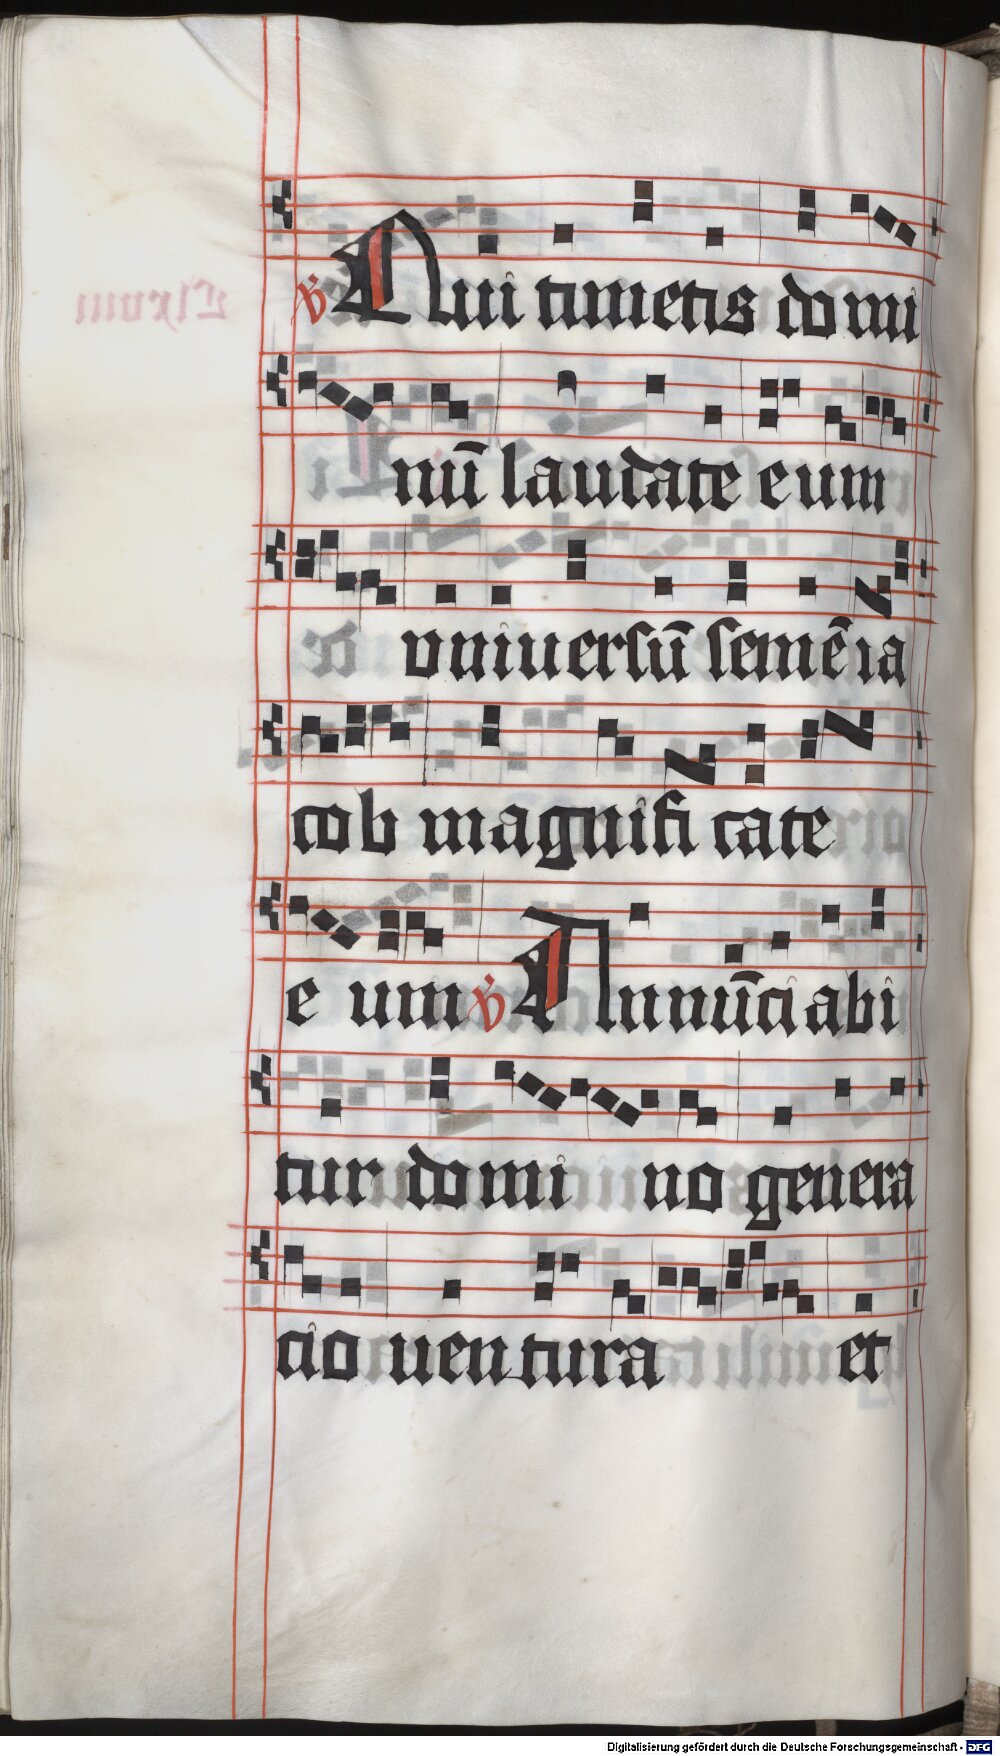 ℣ Qui timetis domi
nū laudate eum
vniuersū semē ia
cob magnifi cate
e um ℣ Annūciabi
tur domi no genera
cio uentura et
Digitalisierung gefördert durch die Deutsche Forschungsgemeinschaft - DFG